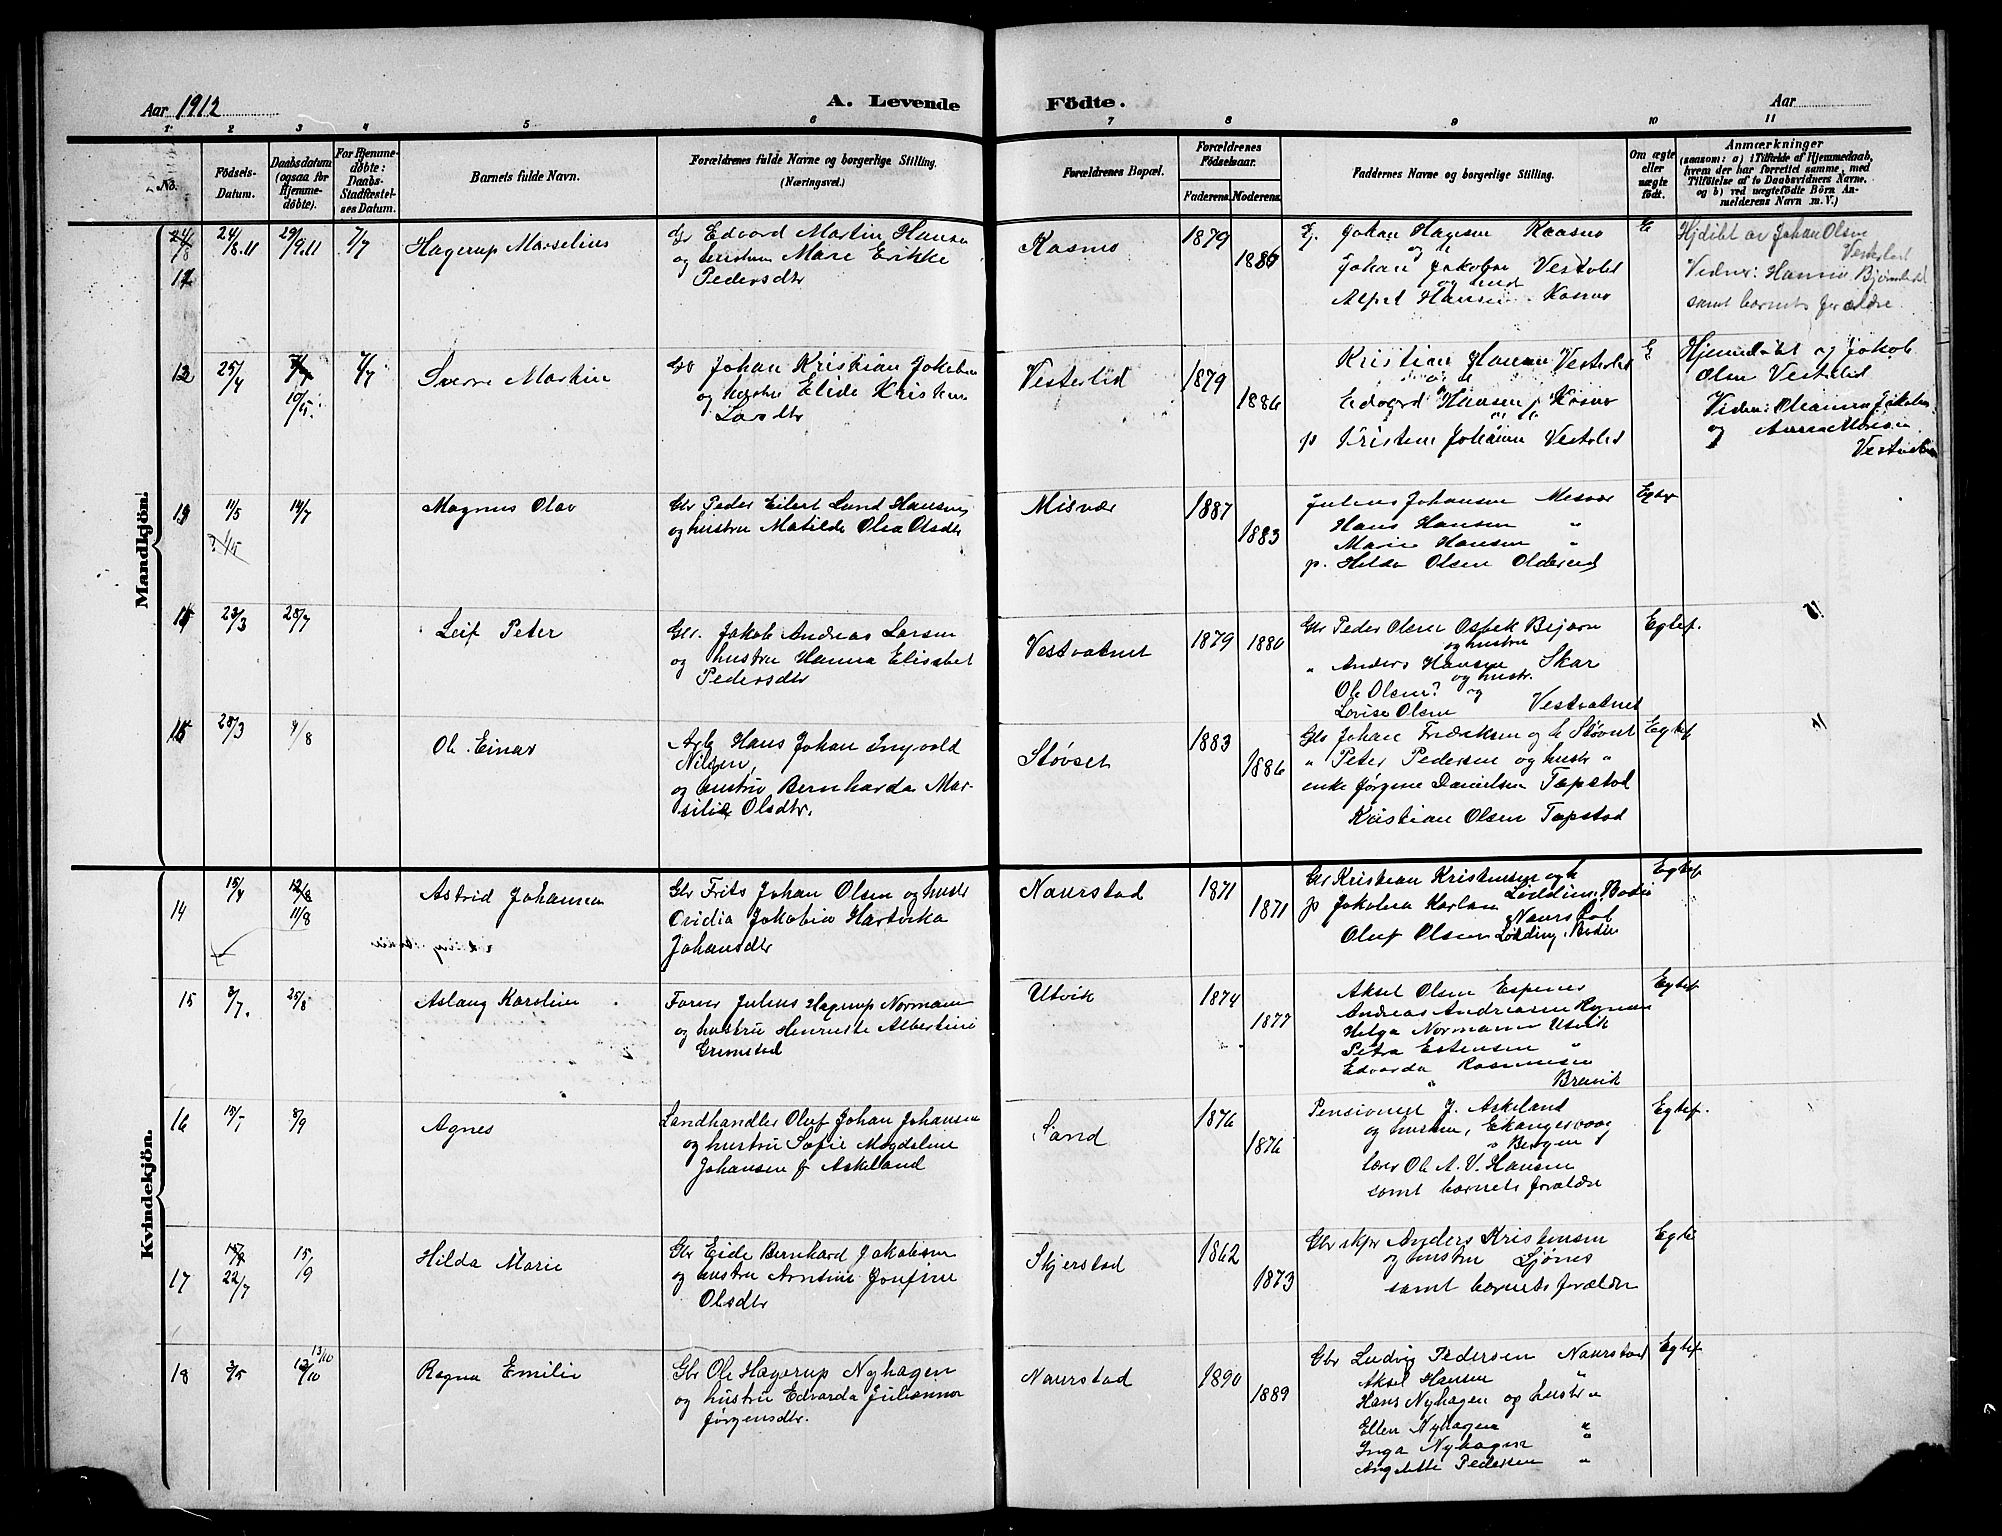 Aar 1912
A. Levende
Födte.
Aar
1 2 3 4 5 6 7 8 9 10 11
No.
Födsels-
Datum.
Daabsdatum
(ogsaa for
Hjemme-
döbte).
For Hjemme-
döbte:
Daabs-
Stadfæstel-
ses Datum.
Barnets fulde Navn.
Forældrenes fulde Navne og borgerlige Stilling.
(Næringsvei.)
Forældrenes Bopæl.
Forældrenes
Födselsaar.
Faderens.
Moderens.
Faddernes Navne og borgerlige Stilling.
Om ægte
eller
uægte
födt.
Anmærkninger
(saasom: a) i Tilfælde af Hjemmedaab,
hvem der har forrettet samme, med
Tilföielse af to Daabsvidners Navne.
og b) ved uægtefödte Börn An-
melderens Navn m. V.)
Mandkjön.
24/8.11 29/9.11 7/7
Hagerup Marselius
Gr Edvard Martin Hansen
og hustru Mare Erikke
Pedersdtr
Kasmo
1879
1886
Johan Hagesen Kaasmo
og
Johan Jakobse Vestelid
Alpet Hansen Kosmo
E
Hjdøbt av Johan Olsen
Vesterlid
Vidner: Hanna Bjørnlid
samt barnets forældre.
12 25/4 10/5 7/7
Sverre Martin
Johan Kristian Jakobsen
og hustru Elide Kristine
Larsdtr
Vesterlid
1879
1886
Kristian Hansen Vesterlid
Edvard Hansen Kosmo
p Kristine Johansen Vestelid
E
Hjemdøbt og Jakob
Olsen Vestelid
Vidner: Oleanna Jakobs.
og
13 11/5 14/7
Magnus Olav
Gbr Peder Eilert Lund Hansen
og hustru Matilde Olea Olsdtr
Misvær
1887
1883
Julius Johansen Mesvær
Hans Hansen "
Marie Hansen "
p. Hilda Olsen Oldereid
Egtef
14 23/3 28/7
Leif Peter
Gbr. Jakob Andreas Larsen
og hustru Hanna Elisabet
Pedersdtr
Vestvatnet
1879 1880
Gbr Peder Olsen Ospek Bejarn
og hustru
" Anders Hansen Skar
og hustr.
Ole Olsen? og
Lovise Olsen Vestvatnet
Egtef.
15 28/3 4/8
Ole Einar
Arb Hans Johan Ingvald
Nilsen,
og hustru Bernharda Mar-
silie Olsdtr.
Støvset
1883
1886
Gbr Johan Fredriksen og h Støvset
" Peter Pedersen og hustr "
enke Jørgine Danielsen Tapstad
Kristian Olsen Tapstad
Egtef
Kvindekjön.
14 15/4 12/8
11/8
Astrid Johanna
Gbr Frits Johan Olsen og hustr
Ovidia Jakobine Hartvika
Johansdtr
Naurstad
1871
1871
Gbr Kristian Kristensen og h
Lødding, Bodin
p Jakobea Karlsen
Naurstad
Oluf Olsen Løding, Bodin
Egtef.
15 3/7. 25/8
Aslaug Karoline
Farver Julius Hagerup Normann
og hustru Henriette Albertine
Grimstad
Utvik
1874
1877
Aksel Olsen Espenes
Andreas Andreasen Rognan
Helga Normann Utvik
Petra Estensen "
Edvarda Rasmussen
" Breivik
Egtef.
16 15/7 8/9
Agnes
Landhandler Oluf Johan Johansen
og hustru Sofie Magdalene
Johansen f Askeland
Sand
1876
1876
Pensioneret J. Askeland
og hustru, Ekangervaag
Bergen
Lærer Ole A. V. Hansen
samt barnets forældre
Egtef.
17 22/7 15/9
Hilda Marie
Gbr Eide Bernhard Jakobsen
og hustru Arntine Josefine
Olsdtr
Skjerstad
1862
1873
Gbr skpr Anders Kristensen
og hustru Ljønes
samt barnets forældre
Egte
18 3/5 13/10
Ragna Emilie
Gbr Ole Hagerup Nyhagen
og hustru Edvarda Julianna
Jørgensdtr.
Naurstad
1890
1889
Gbr Ludvig Pedersen Naurstad
Aksel Hansen "
Hans Nyhagen og hustr "
Ellen Nyhagen "
Inga Nyhagen "
Anglette Pedersen "
Egtef